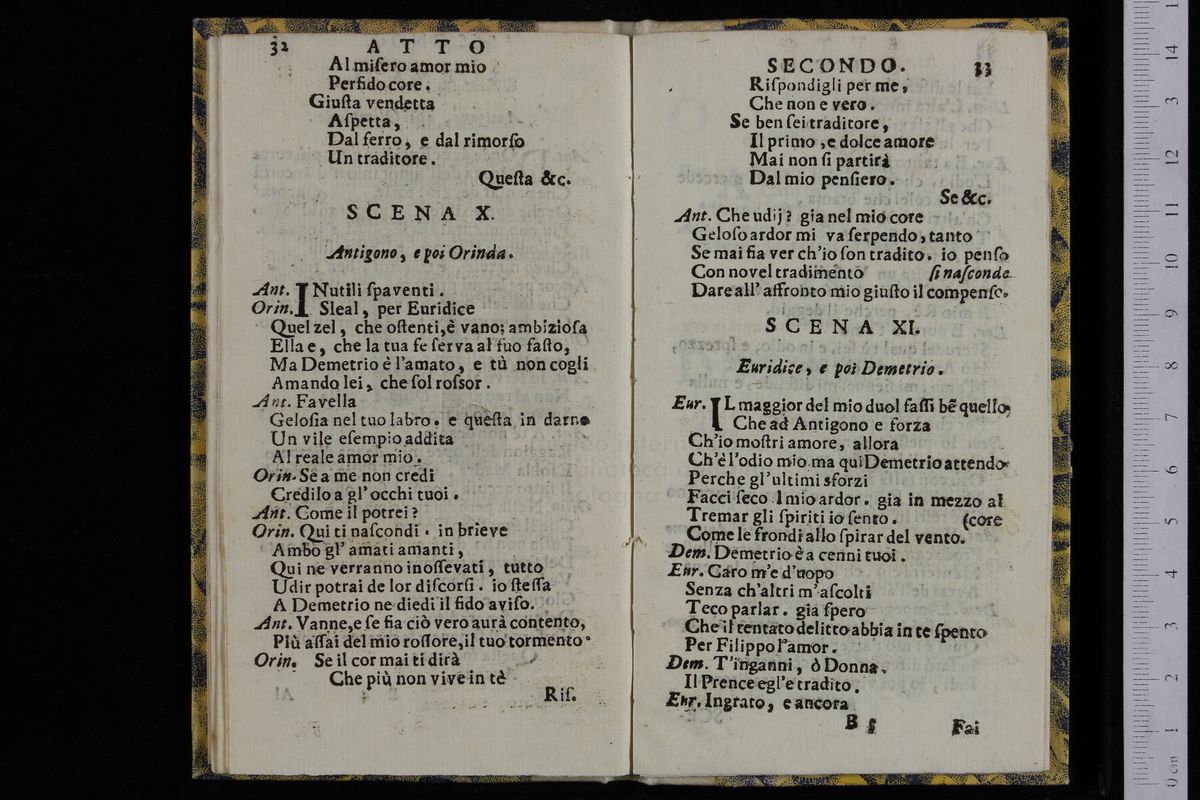 32 ATTO
Al miſero amor mio
Perfido core.
Giuſta vendetta
Aſpetta,
Dal ferro, e dal rimorſo
Un traditore.
Queſta &c.
SCENA X.
Antigono, e poi Orinda.
Ant. INutili ſpaventi.
Orin. Sleal, per Euridice
Quel zel, che oſtenti,è vano; ambizioſa
Ella e, che la tua fe ſerva al ſuo faſto,
Ma Demetrio è l'amato, e tù non cogli
Amando lei, che ſol roſsor.
Ant. Favella
Geloſia nel tuo labro. e queſta in darno
Un vile eſempio addita
Al reale amor mio.
Orin. Se a me non credi
Credilo a gl' occhi tuoi.
Ant. Come il potrei?
Orin. Qui ti naſcondi. in brieve
Ambo gl' amati amanti,
Qui ne verranno inoſſevati, tutto
Udir potrai de lor diſcorſi. io ſteſſa
A Demetrio ne diedi il fido aviſo.
Ant. Vanne,e ſe fia ciò vero aurà contento,
Più aſſai del mio roſſore,il tuo tormento.
Orin. Se il cor mai ti dirà
Che più non vive in tè
Riſ.
SECONDO. 33
Riſpondigli per me,
Che non e vero.
Se ben ſei traditore,
Il primo ,e dolce amore
Mai non ſi partirà
Dal mio penſiero.
Se &c.
Ant. Che udij? gia nel mio core
Geloſo ardor mi va ſerpendo, tanto
Se mai fia ver ch'io ſon tradito. io penſo
Con novel tradimento ſi naſconde.
Dare all' affronto mio giuſto il compenſo.
SCENA XI.
Euridice, e poi Demetrio.
Eur. IL maggior del mio duol faſſi bẽ quello,
Che ad Antigono e forza
Ch'io moſtri amore, allora
Ch'è l'odio mio. ma qui Demetrio attendo
Perche gl'ultimi sforzi
Facci ſeco l mio ardor. gia in mezzo al
Tremar gli ſpiriti io ſento. (core
Come le frondi allo ſpirar del vento.
Dem. Demetrio è a cenni tuoi.
Eur. Caro m'e d'uopo
Senza ch'altri m'aſcolti
Teco parlar. già ſpero
Che il tentato delitto abbia in te ſpento
Per Filippo l'amor.
Dem. T'inganni, ò Donna.
Il Prence egl'e tradito.
Eur. Ingrato, e ancora
B 5 Fai